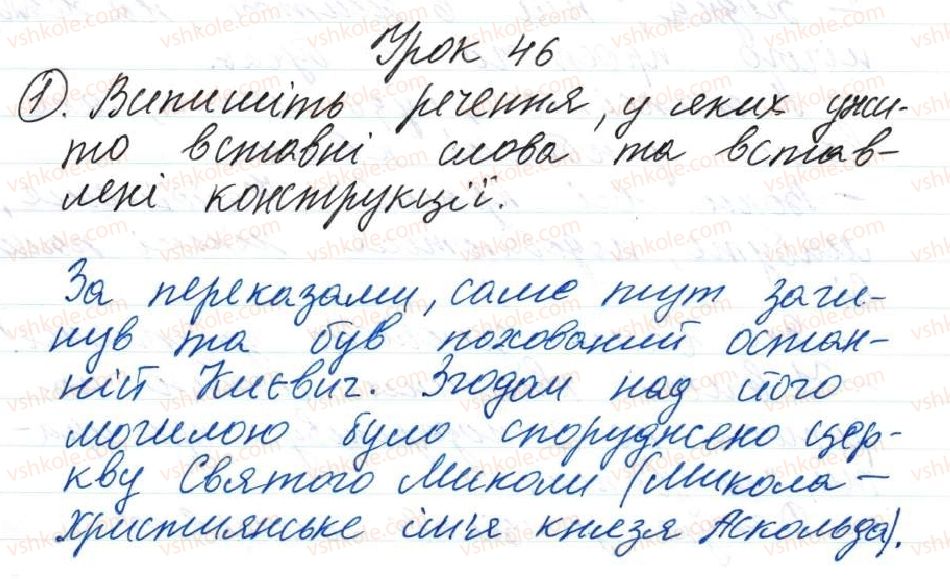 Урок 46
①. Випишіть речення, у яких ужи-
то вставні слова та встав-
лені конструкції.
За переказами, само тут заги-
нув та був похований остан-
ній Києвич. Згодом над його
могилою було споруджено цер-
кву Святого Миколи (Микола –
християнське ім'я князя Аскольда).
vshkole.com